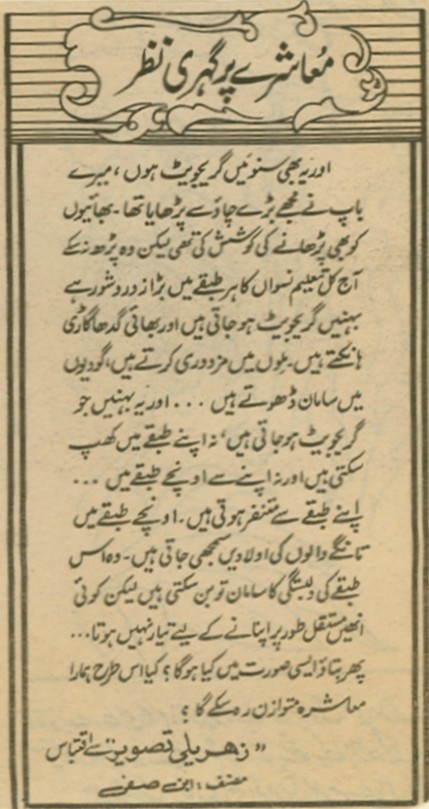 معاشرے پر گہری نظر
اور یہ بھی سنو میں گریجویٹ ہوں، میرے
باپ نے مجھے بڑے چاؤ سے پڑھایا تھا۔ بھائیوں
کو بھی پڑھانے کی کوشش کی تھی لیکن وہ پڑھ نہ سکے
آج کل تعلیم نسواں کا ہر طبقے میں بڑا زور و شور ہے
بہنیں گریجویٹ ہو جاتی ہیں اور بھائی گدھا گاڑی
ہانکتے ہیں۔ ملوں میں مزدوری کرتے ہیں، گودیوں
میں سامان ڈھوتے ہیں ... اور یہ بہنیں جو
گریجویٹ ہو جاتی ہیں، نہ اپنے طبقے میں کھپ
سکتی ہیں اور نہ اپنے سے اونچے طبقے میں ...
اپنے طبقے سے متنفر ہوتی ہیں۔ اونچے طبقے میں
تانگے والوں کی اولادیں سمجھی جاتی ہیں۔ وہ اس
طبقے کی دلبستگی کا سامان تو بن سکتی ہیں لیکن کوئی
انھیں مستقل طور پر اپنانے کے لیے تیار نہیں ہوتا...
پھر بتاؤ ایسی صورت میں کیا ہوگا؟ کیا اس طرح ہمارا
معاشرہ متوازن رہ سکے گا؟
"زہریلی تصویر" سے اقتباس
مصنف: ابن صفی